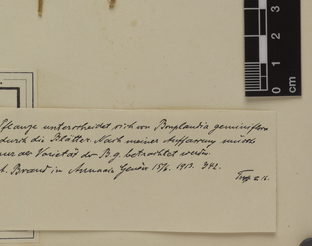 Pflanze unterscheidet sich von Bonplandia geminiflora
durch die Blätter. Nach meiner Auffassung müsste
nur als Varietät der B. g. betrachtet werden.
Brand in Annuaire Genève 15/6. 1913. 342.
0 1 2 3
cm